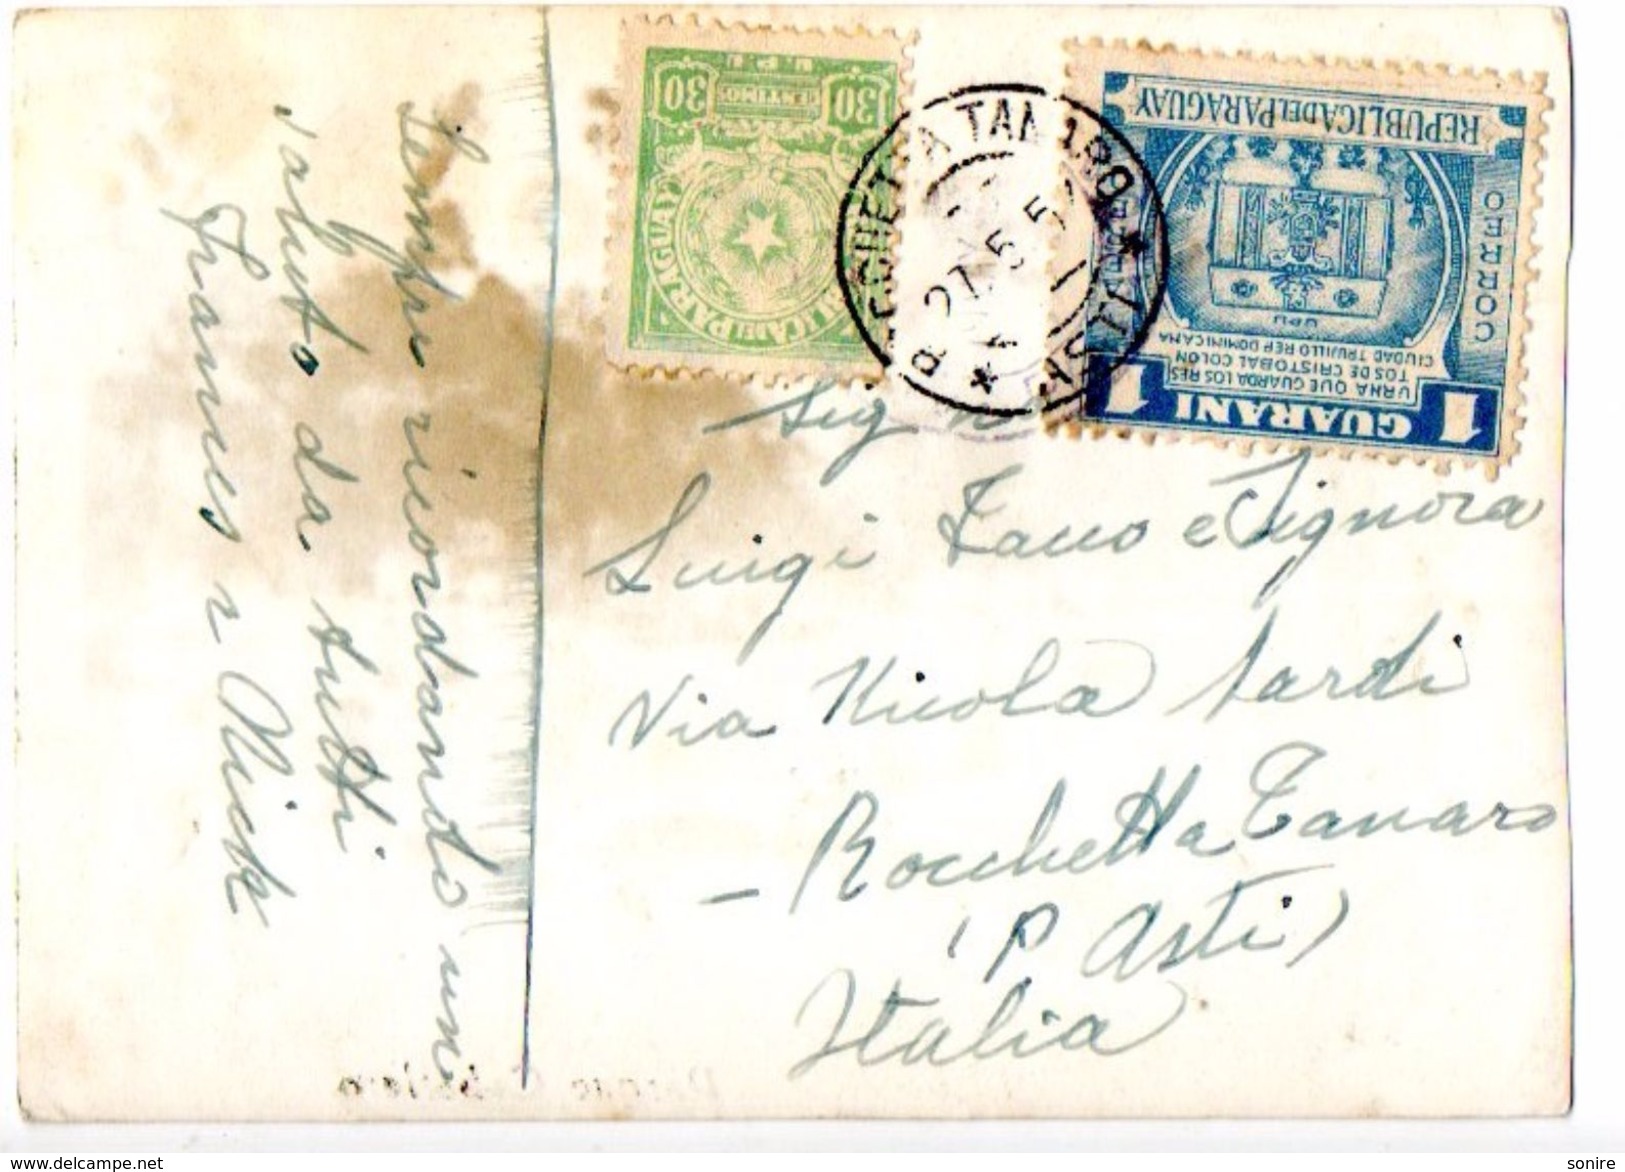 Sempre ricordando un
saluto da tutti
Frances e Nick
30 CENTIMOS 30
U.P.U.
REPUBLICA DEL PARAGUAY
REPUBLICA DEL PARAGUAY
CORREO
UPU
URNA QUE GUARDA LOS RES
TOS DE CRISTOBAL COLON
CIUDAD TRUJILLO REP DOMINICANA
1 GUARANI 1
TANARO
27.5.5
Sig
Luigi e Signora
Via Nicola Sardi
Rocchetta Tanaro
(P Asti)
Italia
sonire
delcampe.net